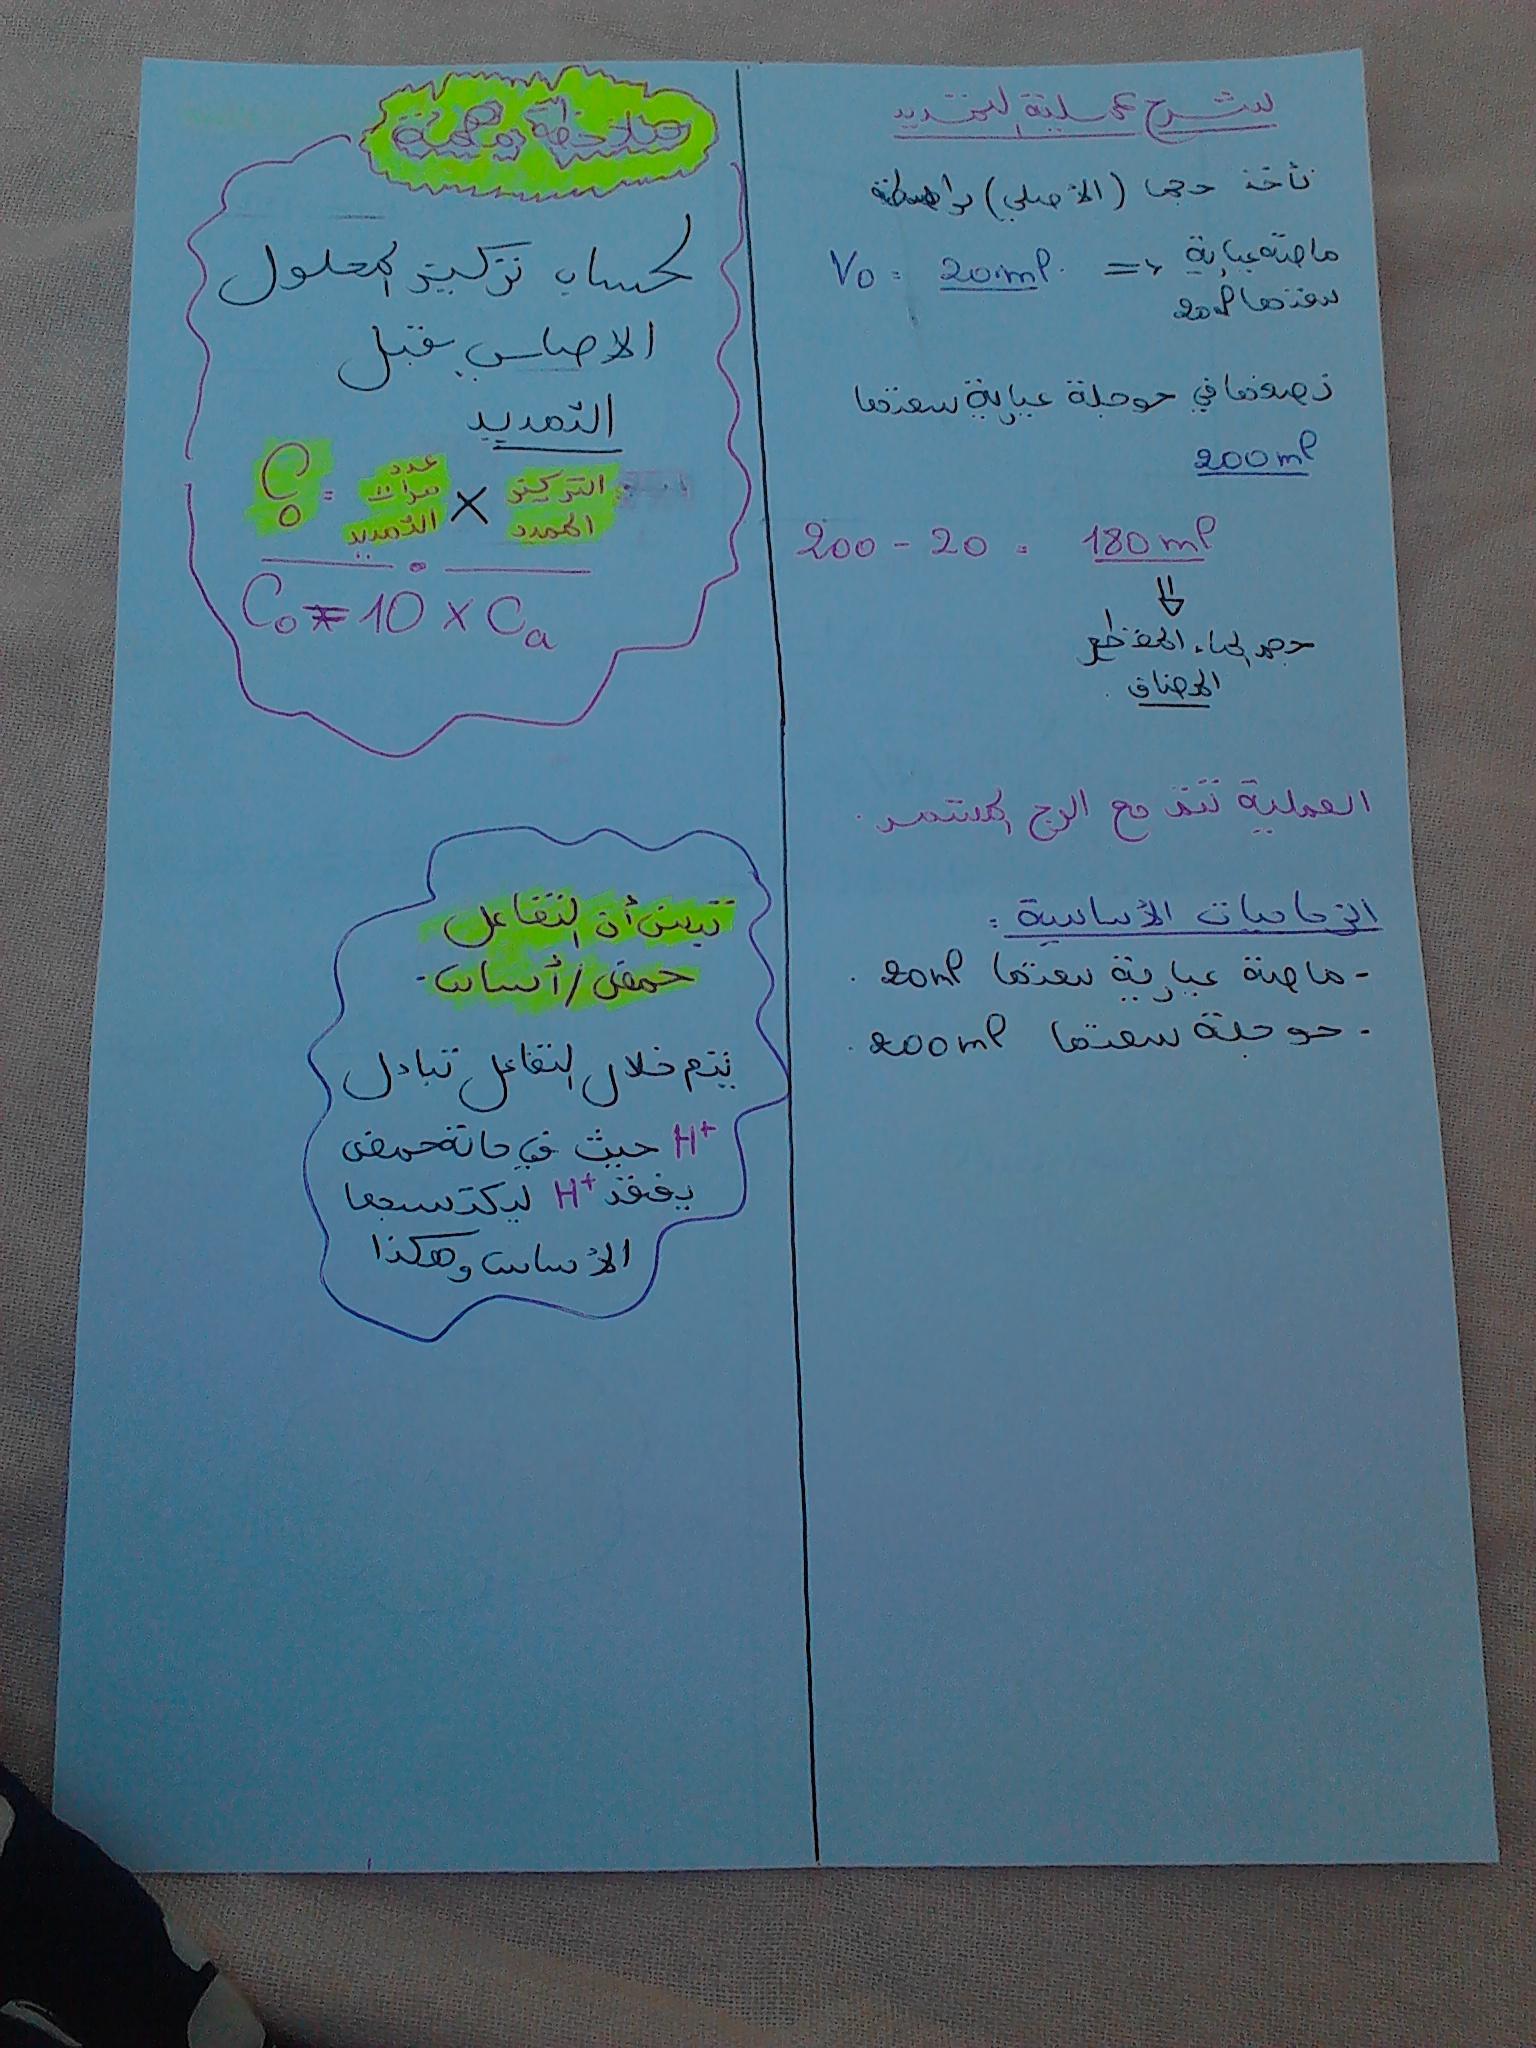 لشرح عملية التمديد
نأخذ حجما (الأصلي) بواسطة
ماصة عيارية
V0 = 20ml =>
سعتها 20ml
نضعها في حوجلة عيارية سعتها
200ml
200 - 20 = 180ml
حجم الماء المقطر
المضاف.
العملية تتم مع الرج المستمر.
الزجاجيات الأساسية:
- ماصة عيارية سعتها 20ml.
- حوجلة سعتها 200ml.
ملاحظة مهمة
لحساب تركيز المحلول
الاصلي قبل
التمديد
C0 = عدد مرات التمديد × التركيز الممدد
C0 = 10 × Ca
تبيين أن التفاعل
حمض / أساس.
يتم خلال التفاعل تبادل
H+ حيث في حالة حمض
يفقد H+ ليكتسبها
الأساس وهكذا